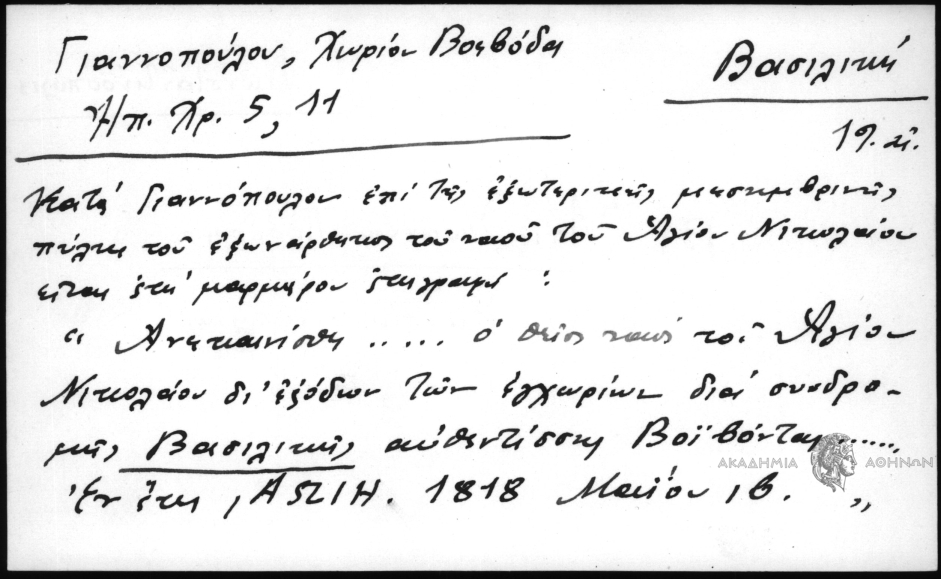 Γιαννοπούλου, Χωρίον Βοεβόδα
Ἠπ. Χρ. 5, 11
Βασιλική
19. αἰ.
Κατὰ Γιαννόπουλον ἐπὶ τῆς ἐξωτερικῆς μεσημβρινῆς
πύλης τοῦ ἐξωνάρθηκος τοῦ ναοῦ τοῦ Ἁγίου Νικολάου
εἶναι ἐπὶ μαρμάρου ἐπιγραφή :
“ Ἀνεκαινίσθη ..... ὁ θεῖος ναὸς τοῦ Ἁγίου
Νικολάου δι' ἐξόδων τῶν ἐγχωρίων διὰ συνδρο-
μῆς Βασιλικῆς αὐθεντίσσης Βοϊβόντα ......
Ἐν ἔτει ,ΑΩΙΗ. 1818 Μαΐου ιβ. „
ΑΚΑΔΗΜΙΑ ΑΘΗΝΩΝ